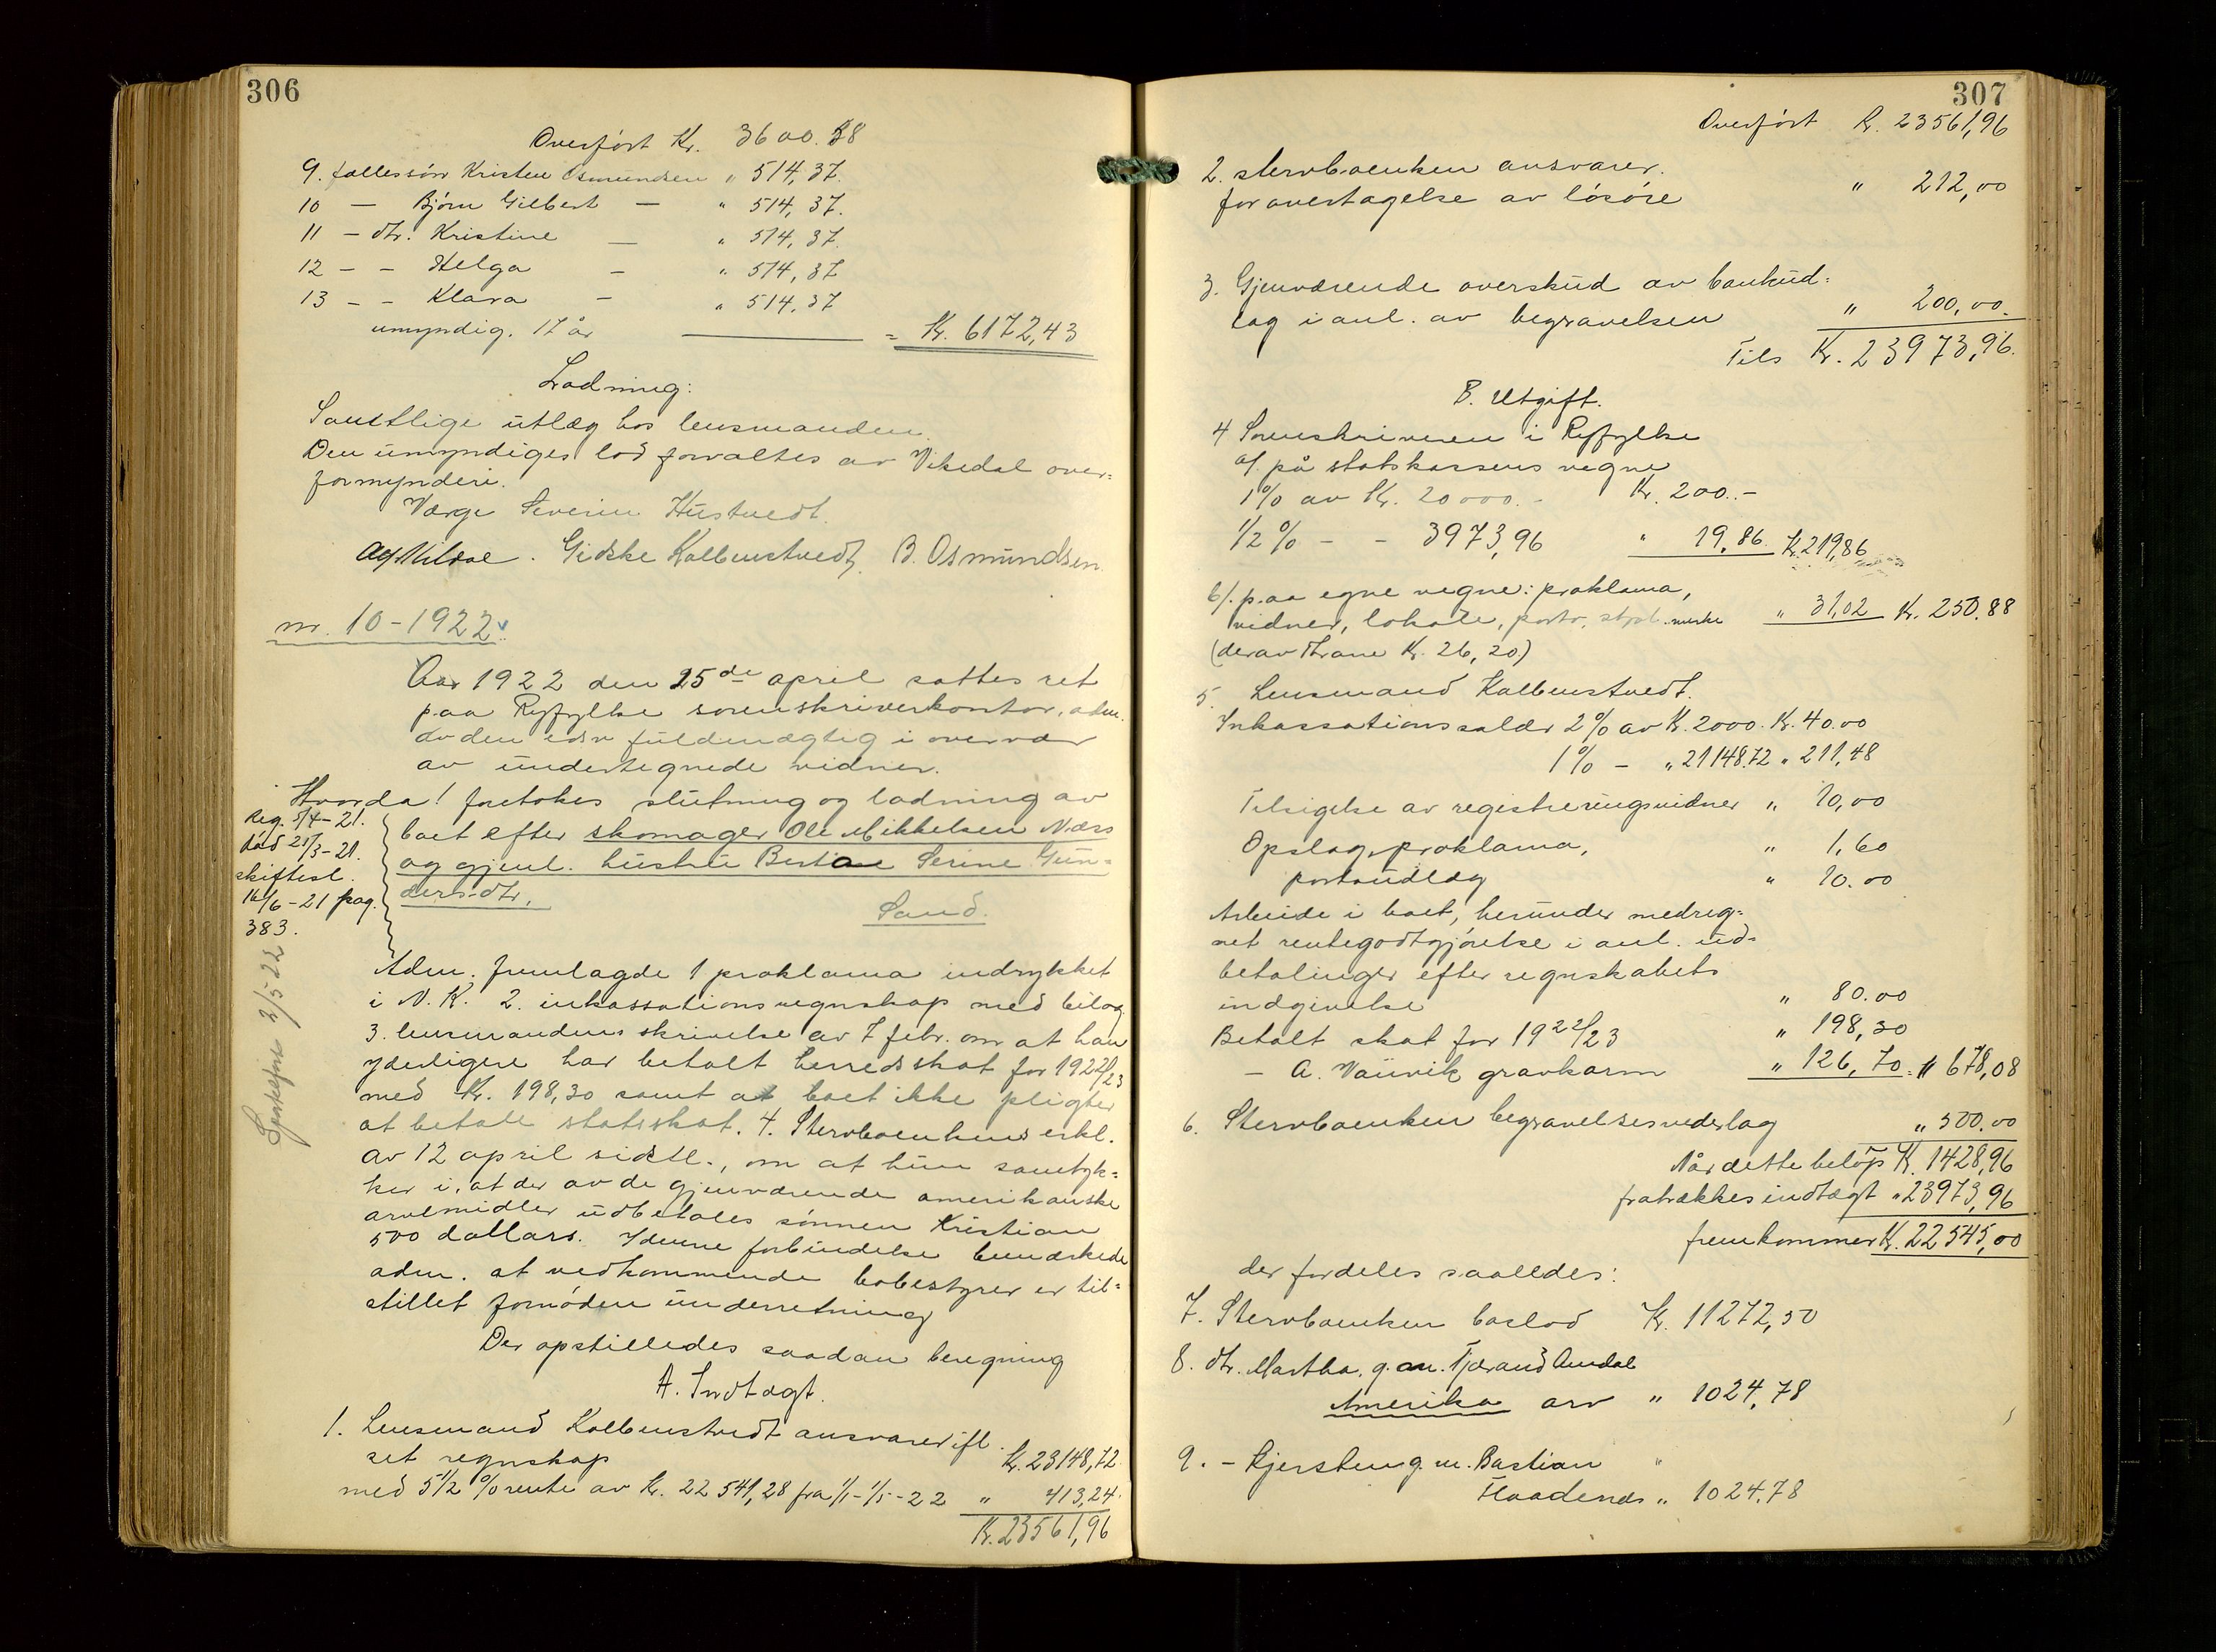 306
Overført Kr. 3600.58
9. fællessøn Kristen Osmundsen " 514,37.
10 — Bjørn Gilbert — " 514,37.
11 — dtr. Kristine — " 514,37.
12 - - Helga - " 514,37
13 - - Klara - " 514,37
umyndig. 17 år = Kr. 6172,43
Lodning:
Samtlige utlæg hos lensmanden.
Den umyndiges lod forvaltes av Vikedal over-
formynderi.
Værge Severin Hustvedt.
Gidske Kolbenstvedt. B. Osmundsen.
nr. 10-1922.
Aar 1922 den 25de april sattes ret
paa Ryfylke sorenskriverkontor, adm.
av den edsv fuldmægtig i overvær
av undertegnede vidner.
Hvorda! foretokes slutning og lodning av
boet efter skomager Ole Mikkelsen Næss
og gjenl. hustru Bertine Serine Gun-
ders.dtr.
Sand.
Reg. 5/4-21.
død 21/3-21.
skiftesl.
16/6-21 pag.
383.
2/5 22
Adm. fremlagde 1 proklama indrykket
i N. K. 2. inkassationsregnskap med bilag
3. lensmandens skrivelse av 7 febr. om at han
yderligere har betalt herredsskat for 1922/23
med Kr. 198,30 samt at boet ikke pligter
at betale statsskat. 4. Stervboenkens erkl.
av 12 april sidstl., om at hun samtyk-
ker i, at der av de gjenværende amerikanske
arvemidler udbetales sønnen Kristian
500 dollars. I denne forbindelse bemærkede
adm. at vedkommende bobestyrer er til-
stillet fornøden underretning
Der opstilledes saadan beregning
A. Indtægt.
1. Lensmand Kolbenstvedt ansvarer ifl.
set regnskap Kr. 23148,72.
med 5 1/2 % rente av Kr. 22541,28 fra 1/1-1/5-22 " 413,24.
Kr. 23561,96
307
Overført Kr. 23561,96
2. stervboenken ansvarer.
for overtagelse av løsøre " 212,00
3. Gjenværende overskud av
lag i anl. av begravelsen " 200,00.
Tils Kr. 23973,96.
B. Utgift.
4 Sorenskriveren i Ryfylke
a/. på statskassens vegne
1% av Kr. 20000.- Kr. 200.-
1/2 % - - 3973,96 " 19,86. Kr. 219,86
b/. paa egne vegne: proklama,
vidner, lokale, porto, stpl. merke " 31,02 Kr. 250.88
(derav Thrane Kr. 26,20)
5. Lensmand Kolbenstvedt.
Inkassationssalær 2% av Kr. 2000. Kr. 40.00
1% - " 21148.72 " 211,48
Tilsigelse av registreringsvidner " 10,00
Opslag, proklama, " 1,60
portoudlæg " 10.00
Arbeide i boet, herunder medreg-
net rentegodtgjørelse i anl. ud-
betalinger efter regnskabets
indgivelse " 80.00
Betalt skat for 1922/23 " 198,30
- A. Vaüvik gravkarm " 126,70 = " 678,08
6. Stervboenken begravelsesvederlag " 500.00
Når dette beløp Kr. 1428,96
fratrækkes indtægt " 23973,96
fremkommer Kr. 22545,00
der fordeles saaledes:
7. Stervboenken boslod Kr. 11272,50
8. dtr. Martha, g.m. Tjerand Amdal
Amerika arv " 1024,78
9. - Kjersten g.m. Bastian "
Flaadenæs " 1024.78